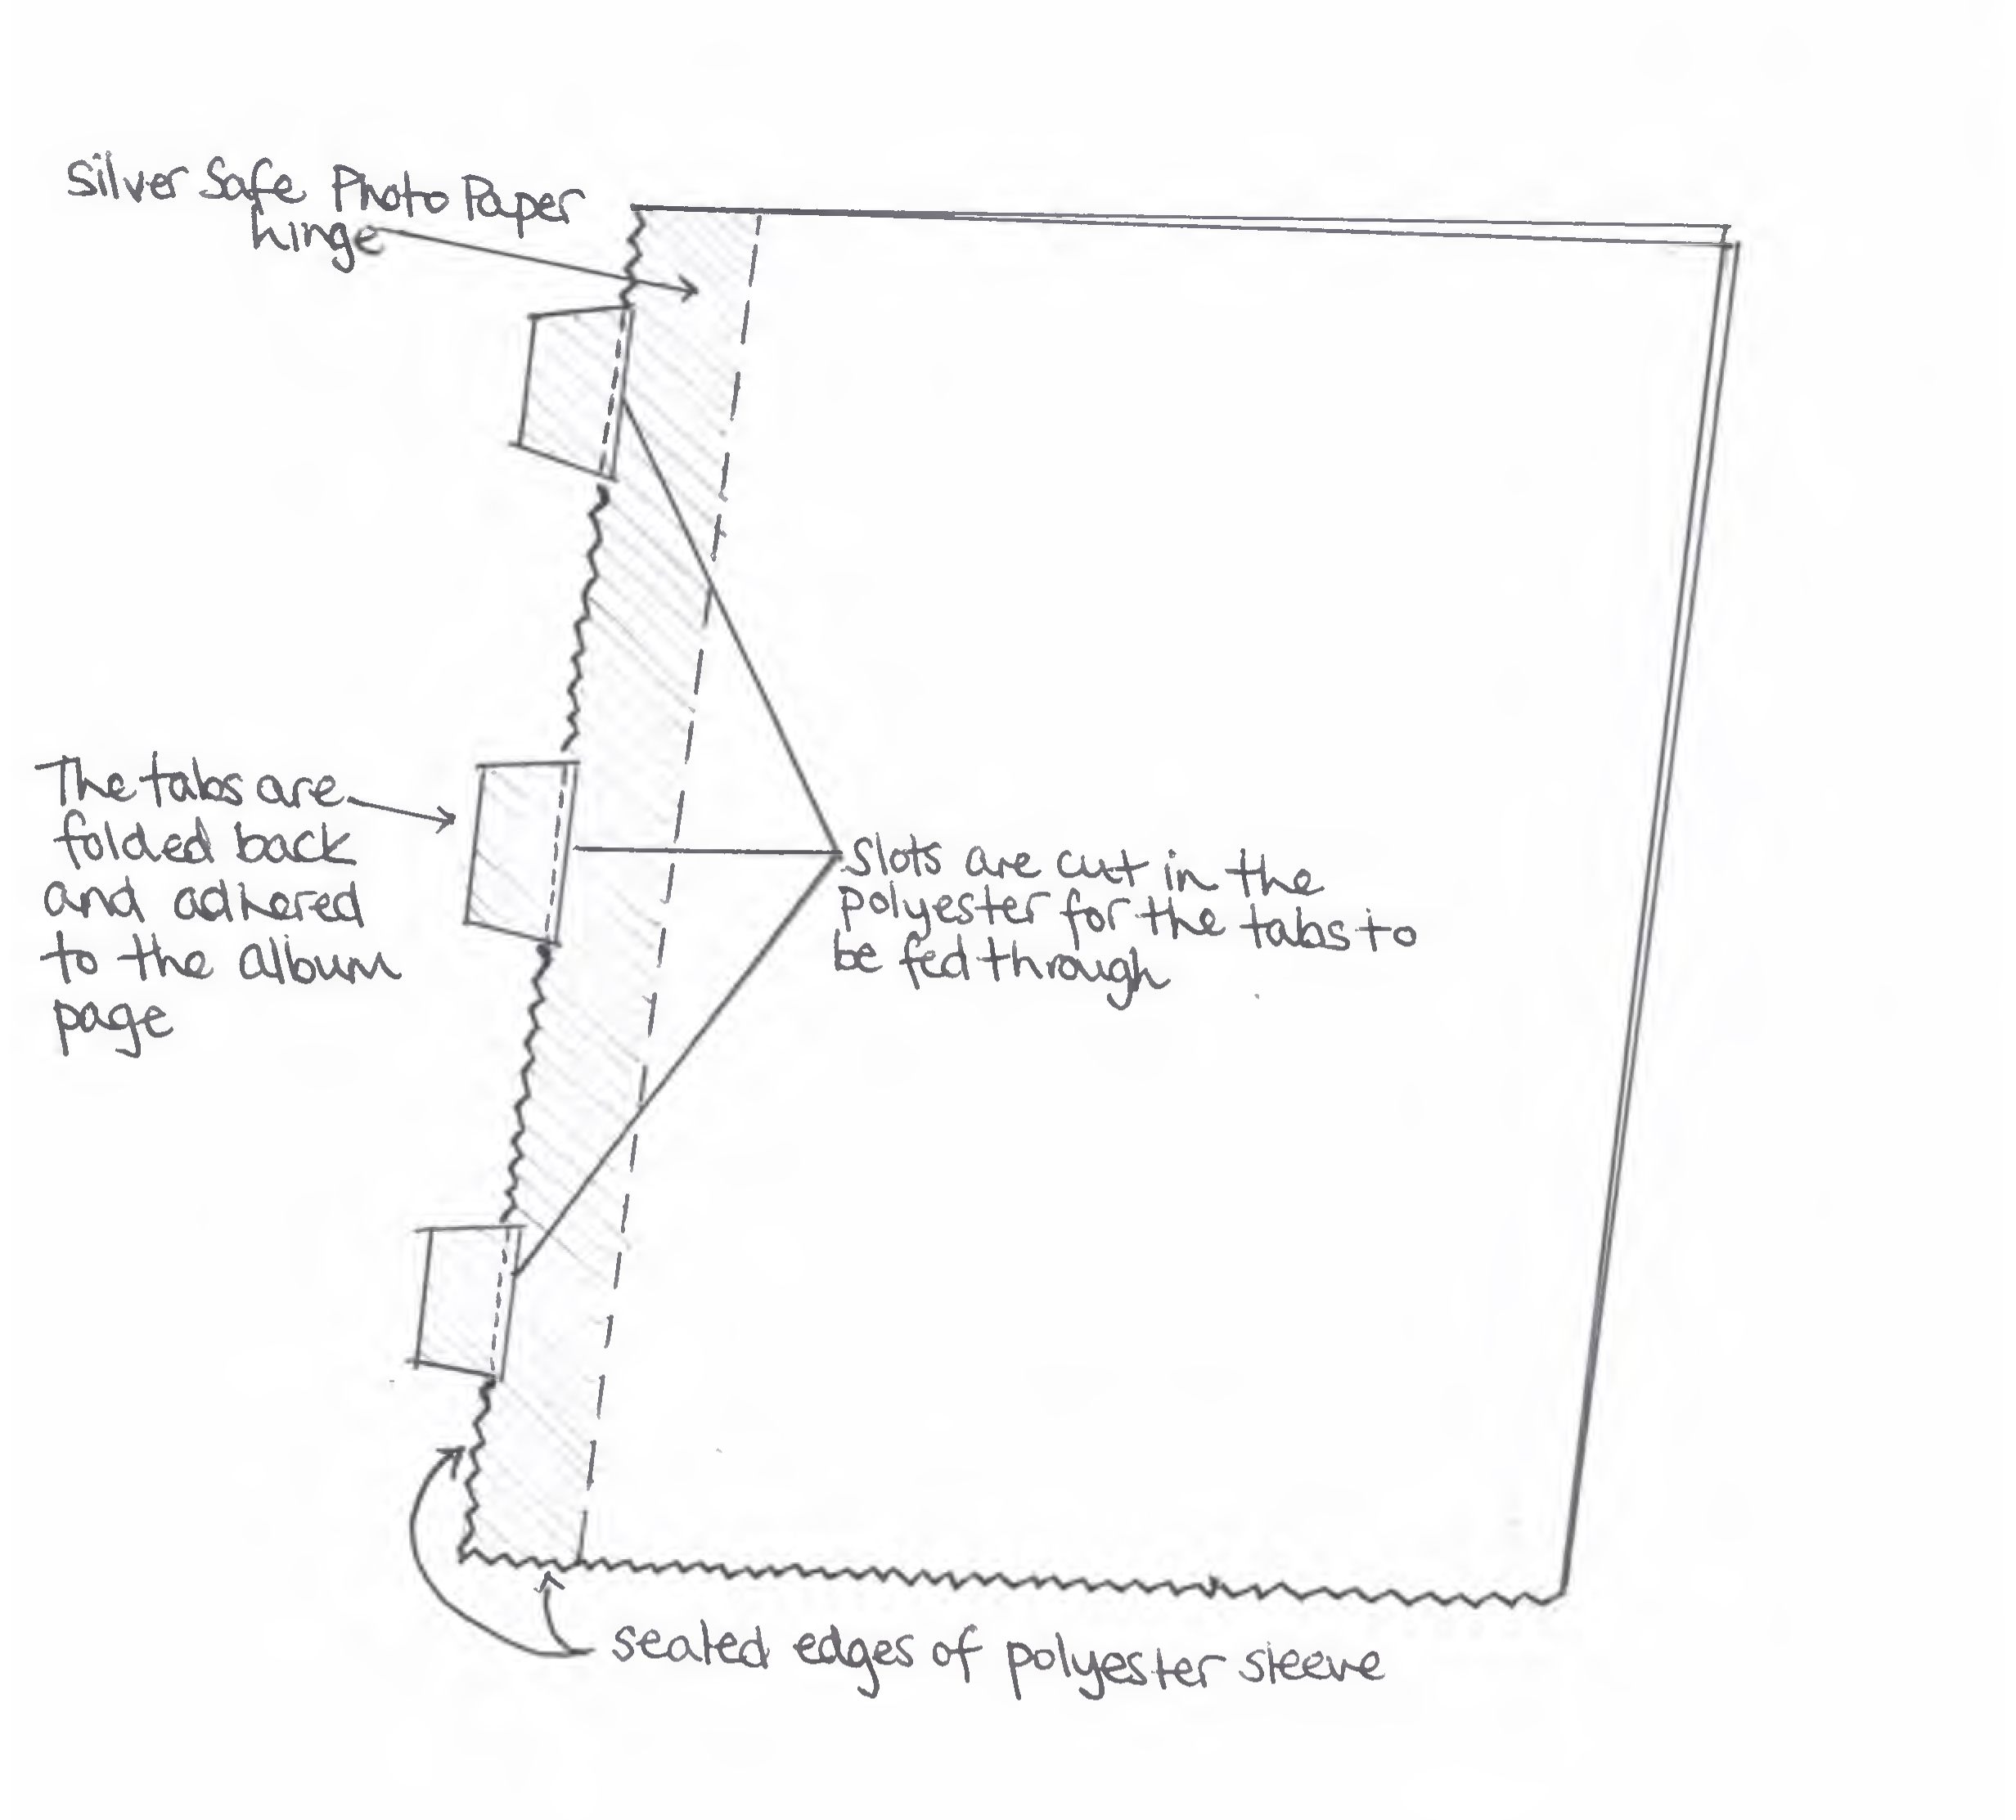 Silver Safe Photo Paper
hinge
The tabs are
folded back
and adhered
to the album
page
Slots are cut in the
polyester for the tabs to
be fed through
sealed edges of polyester sleeve